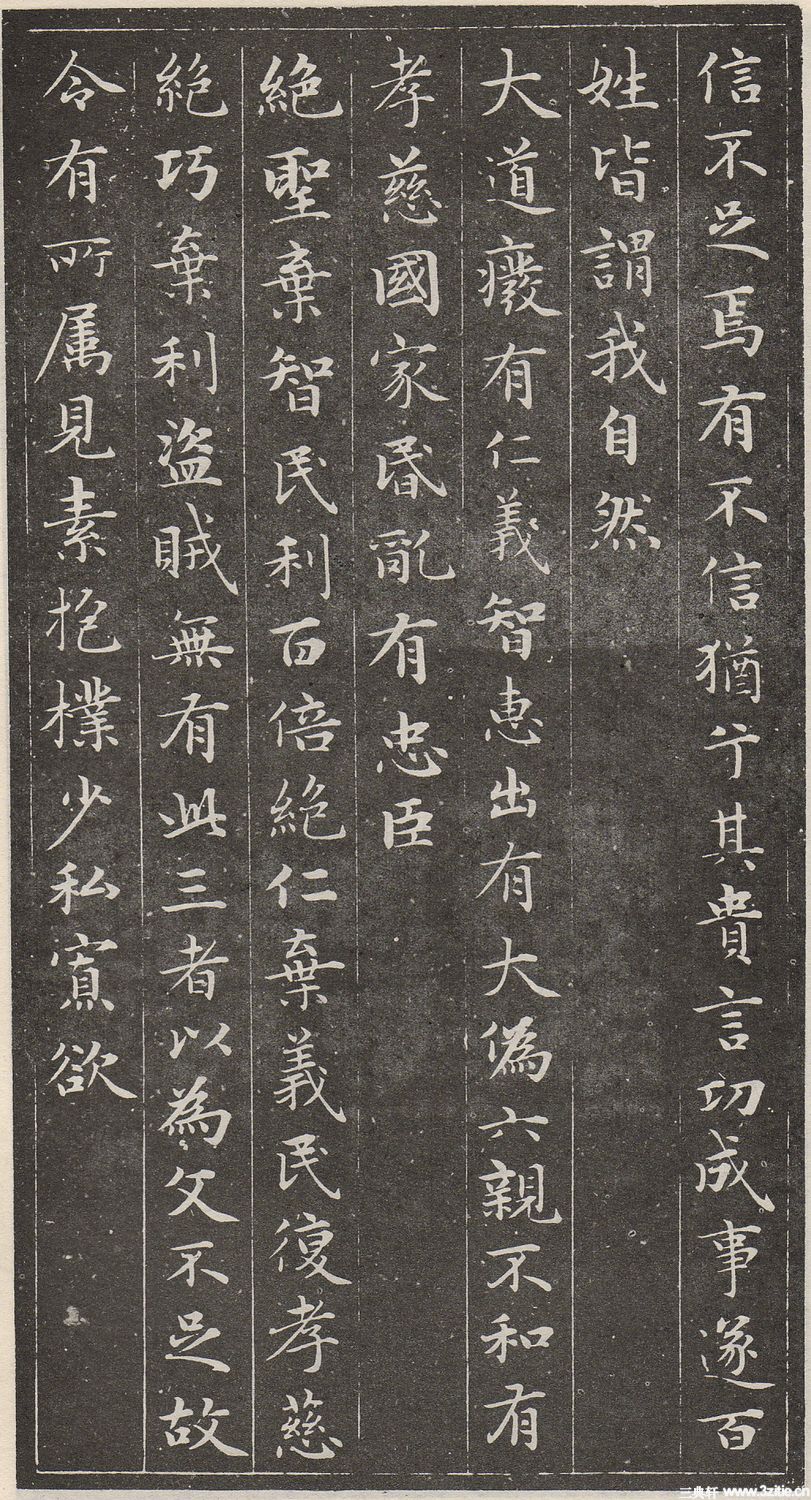 信不足焉有不信猶兮其貴言功成事遂百
姓皆謂我自然
大道癈有仁義智惠出有大偽六親不和有
孝慈國家昬亂有忠臣
絶聖棄智民利百倍絶仁棄義民復孝慈
絶巧棄利盜賊無有此三者以為文不足故
令有所属見素抱樸少私寡欲
三典轩 www.3zitie.cn